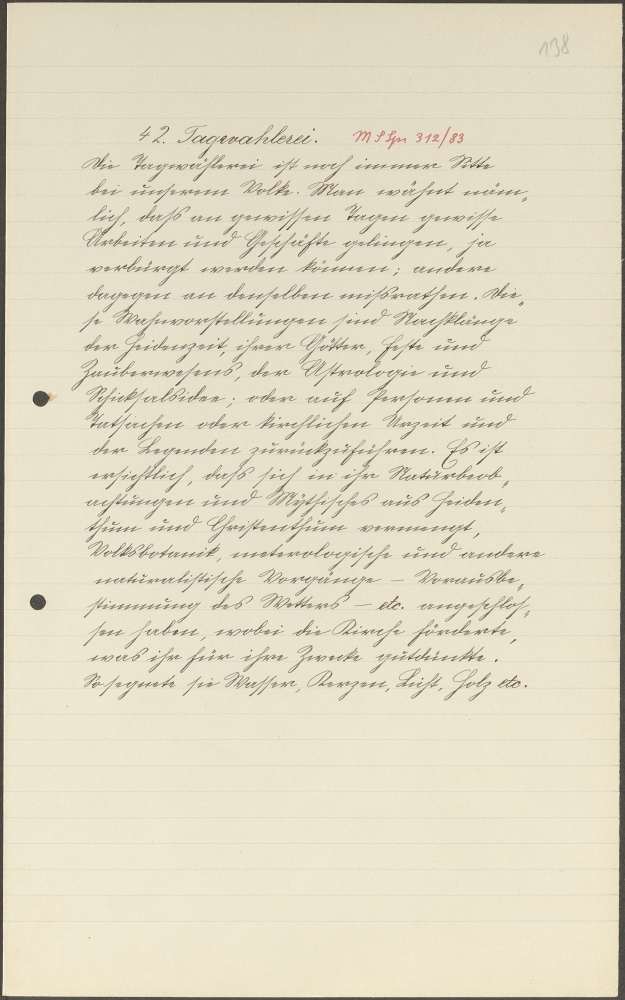 138
42. Tagwahlerei. M S Spr 312/83
Die Tagwählerei ist noch immer Sitte
bei unserem Volke. Man wähnt näm-
lich, daß an gewissen Tagen gewisse
Arbeiten und Geschäfte gelingen, ja
verbürgt werden können; andere
dagegen an denselben missrathen. Die-
se Wahnvorstellungen sind Nachklänge
der Heidenzeit, ihrer Götter, Feste und
Zauberwesens, der Astrologie und
Schicksalsidee; oder auf Personen und
Tatsachen oder kirchlichen Urzeit und
der Legenden zurückzuführen. Es ist
ersichtlich, daß sich in ihr Naturbeob-
achtungen und Mythisches aus Heiden-
thum und Christenthum vermengt,
Volksbotanik, meterologische und andere
naturalistische Vorgänge – Vorausbe-
stimmung des Wetters – etc. angeschlos-
sen haben, wobei die Kirche förderte,
was ihr für ihre Zwecke gutdünkte.
So segnete sie Wasser, Kerzen, Licht, Holz etc.